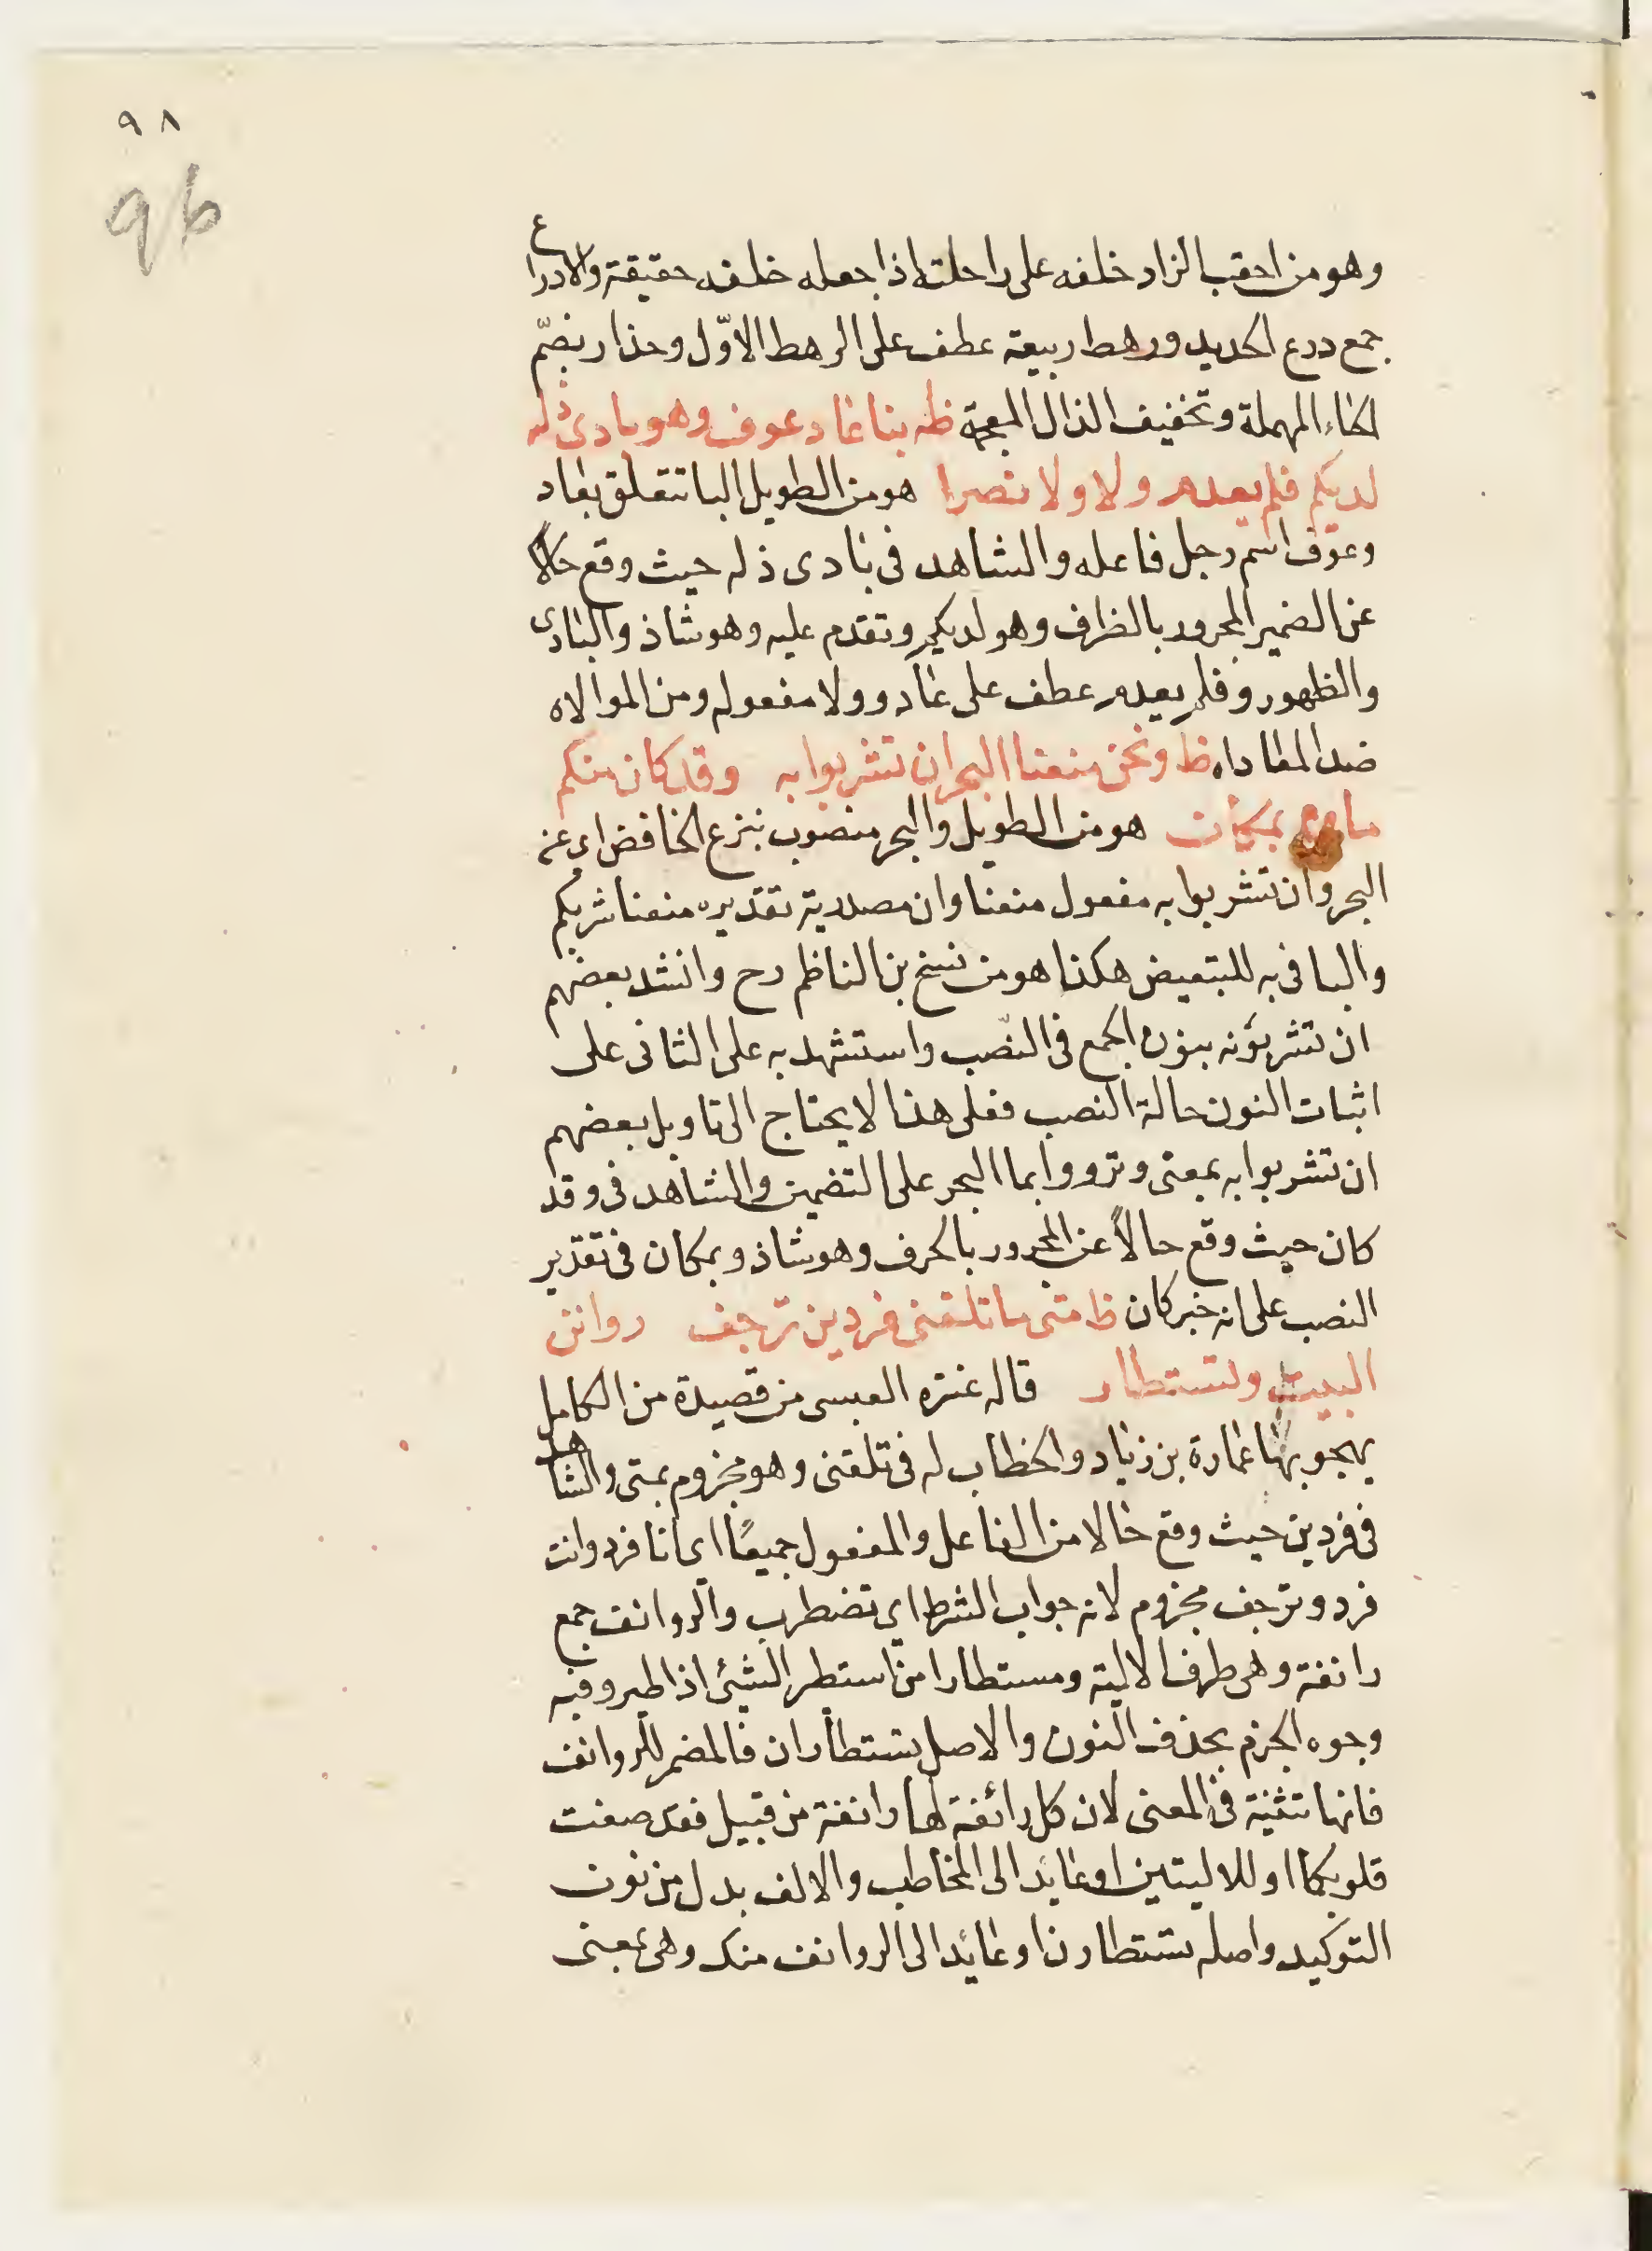 ٩٨
96
وهو من احقب الزاد خلفه على راحلته اذا جعله خلفه حقيقة والادراع
جمع درع الحديد ورهط ربيعة عطف على الرهط الاوّل وحذار بضمّ
الحاء المهملة وتخفيف الذال المعجمة ظه بنا عاد عوف وهو بادى ذله
لديكم فلم يعدم ولاء ولا نصرا هو من الطويل البا تتعلق بعاد
وعوف اسم رجل فاعله والشاهد فى بادى ذله حيث وقع حالا
عن الضمير المجرور بالظرف وهو لديكم وتقدم عليه وهو شاذ والبادى
والظهور وفلم يعدم عطف على عاد وولا مفعوله ومن الموالاه
ضد المعاداه ظ ونحن منعنا البحر ان تشربوا به وقد كان منكم
ماءه بمكان هو من الطويل والبحر منصوب بنزع الخافض اى عن
البحر وان تشربوا به مفعول منعنا وان مصدرية تقديره منعنا شربكم
والبا فى به للتبعيض هكذا هو من نسخ بن الناظم رح وانشد بعضهم
ان تشربونه بنون الجمع فى النصب واستشهد به على الثانى على
اثبات النون حالة النصب فعلى هذا لا يحتاج الى تاويل بعضهم
ان تشربوا به بمعنى وترووا بما البحر على التضمين والشاهد فى وقد
كان حيث وقع حالاً عن المجرور بالحرف وهو شاذ وبمكان فى تقدير
النصب على انه خبر كان ظ متى ما تلقنى فردين ترجف روانق
البيت وتستطار قاله عنتره العبسى من قصيدة من الكامل
يهجو بها عمارة بن زياد والخطاب له فى تلقنى وهو مجزوم بمتى والشاهد
فى فردين حيث وقع حالا من الفاعل والمفعول جميعًا اى انا فرد وانت
فرد وترجف مجزوم لانه جواب الشرط اى تضطرب والروانف جمع
رانفة وهى طرف الالية ومستطارا من استطر الشيئ اذا طير وفيه
وجوه الجزم بحذف النون والاصل تستطاران فالمضمر للروانف
فانها تثنية فى المعنى لان كل رائفة لها رانفة من قبيل فقد صغت
قلوبكما او للاليتين او عايد الى المخاطب والالف بدل من نون
التوكيد واصله تستطارن او عائد الى الروانف منك وهى بمعنى